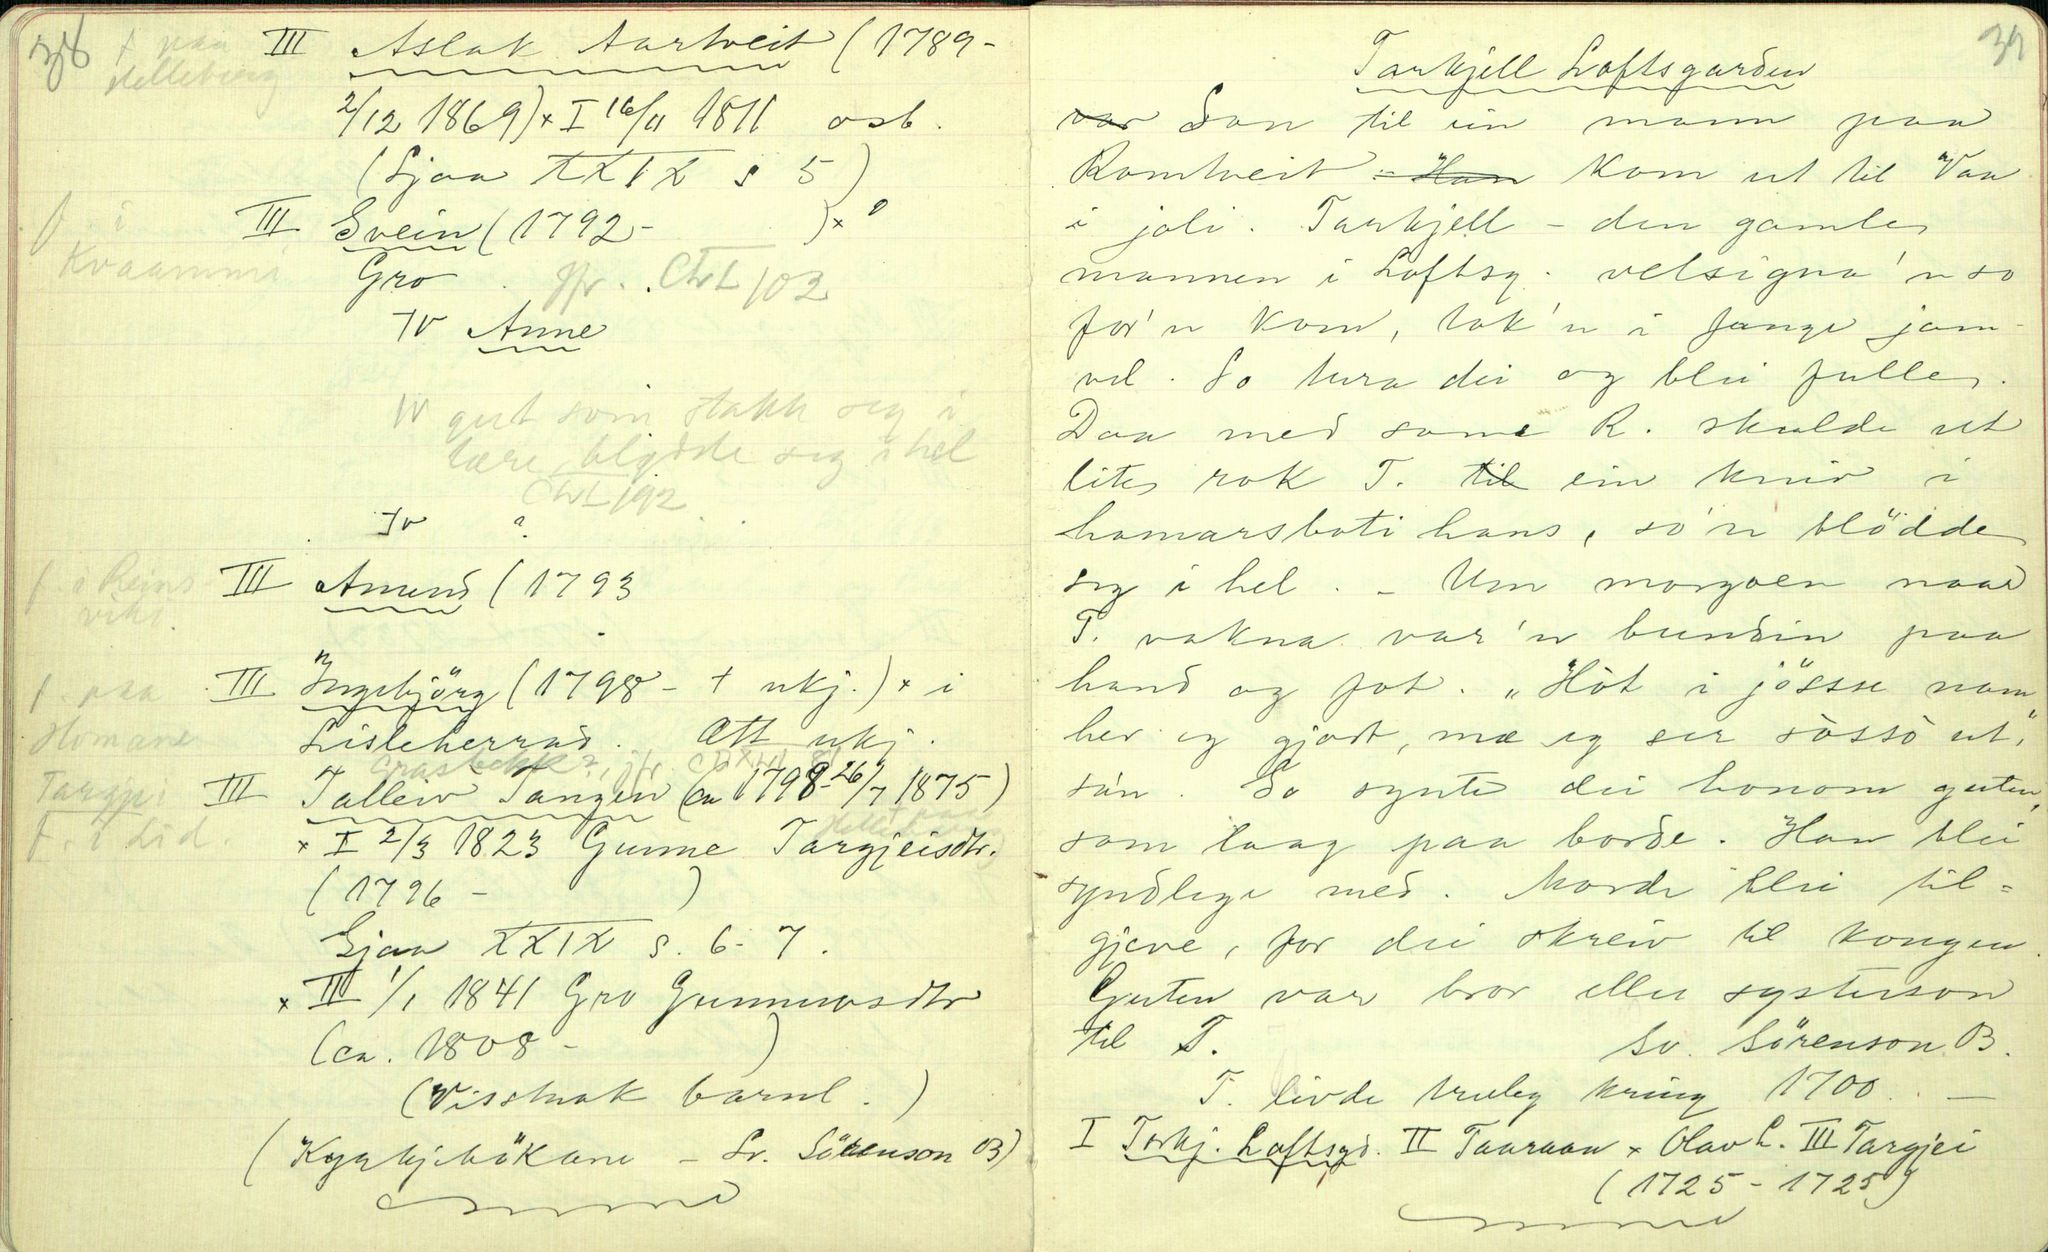 38
f. paa
Helleberg
III Aslak Aartveit (1789-
2/12 1869) x I 16/11 1811 osb.
(Gjaa XXIX s 5)
f. i
Kvaammi
III Svein (1792- ) x ?
Gro jfr. CLVL 102
IV Anne
IV gut som stakk seg i
lære, blødde seg i hel
192
IV ?
f. i Reins
viki.
III Amund (1793
f. paa
Homane
III Ingebjörg (1798 - + ukj.) x i
Lisleherrad. Ætt ukj.
Targjei
f. i Lid.
III Talleiv Tangen (ca 1798-26/7 1875)
+ paa
Helleberg
x I 2/3 1823 Gunne Targjeisdtr.
(1796 - )
Gjaa XXIX s. 6-7.
x II 1/1 1841 Gro Gunnuvsdtr
(ca. 1808 - )
(Visstnok barnl.)
(Kyrkjebökane - Sv. Sörenson B)
39
Tarkjell Loftsgarden
var Son til ein mann paa
Romtveit - Han kom ut til Vaa
i joli. Tarkjell - den gamle
mannen i Loftsg. velsigna 'n so
for'n kom, tok 'n i fange jam-
vel. So tura dei og blei fulle.
Daa med same R. skulde ut
lite, rok T. til ein kniv i
hamarsboti hans, so'n blödde
seg i hel. - Um morgoen naar
T. vakna var'n bundin paa
hand og fot. "Hòt i jösse namn
her eg gjort, mæ eg ser sòssò ut,"
sa'n. So synte dei honom guten,
som laag paa borde. Han blei
syndlege med. Morde blei til=
gjeve, for dei skreiv til kongen.
Guten var bror eller systerson
til T. Sv. Sörenson B.
T. livde truleg kring 1700. —
I Torkj. Loftsgd. II Taaraan x Olav L. III Targjei
(1725 - 1725)